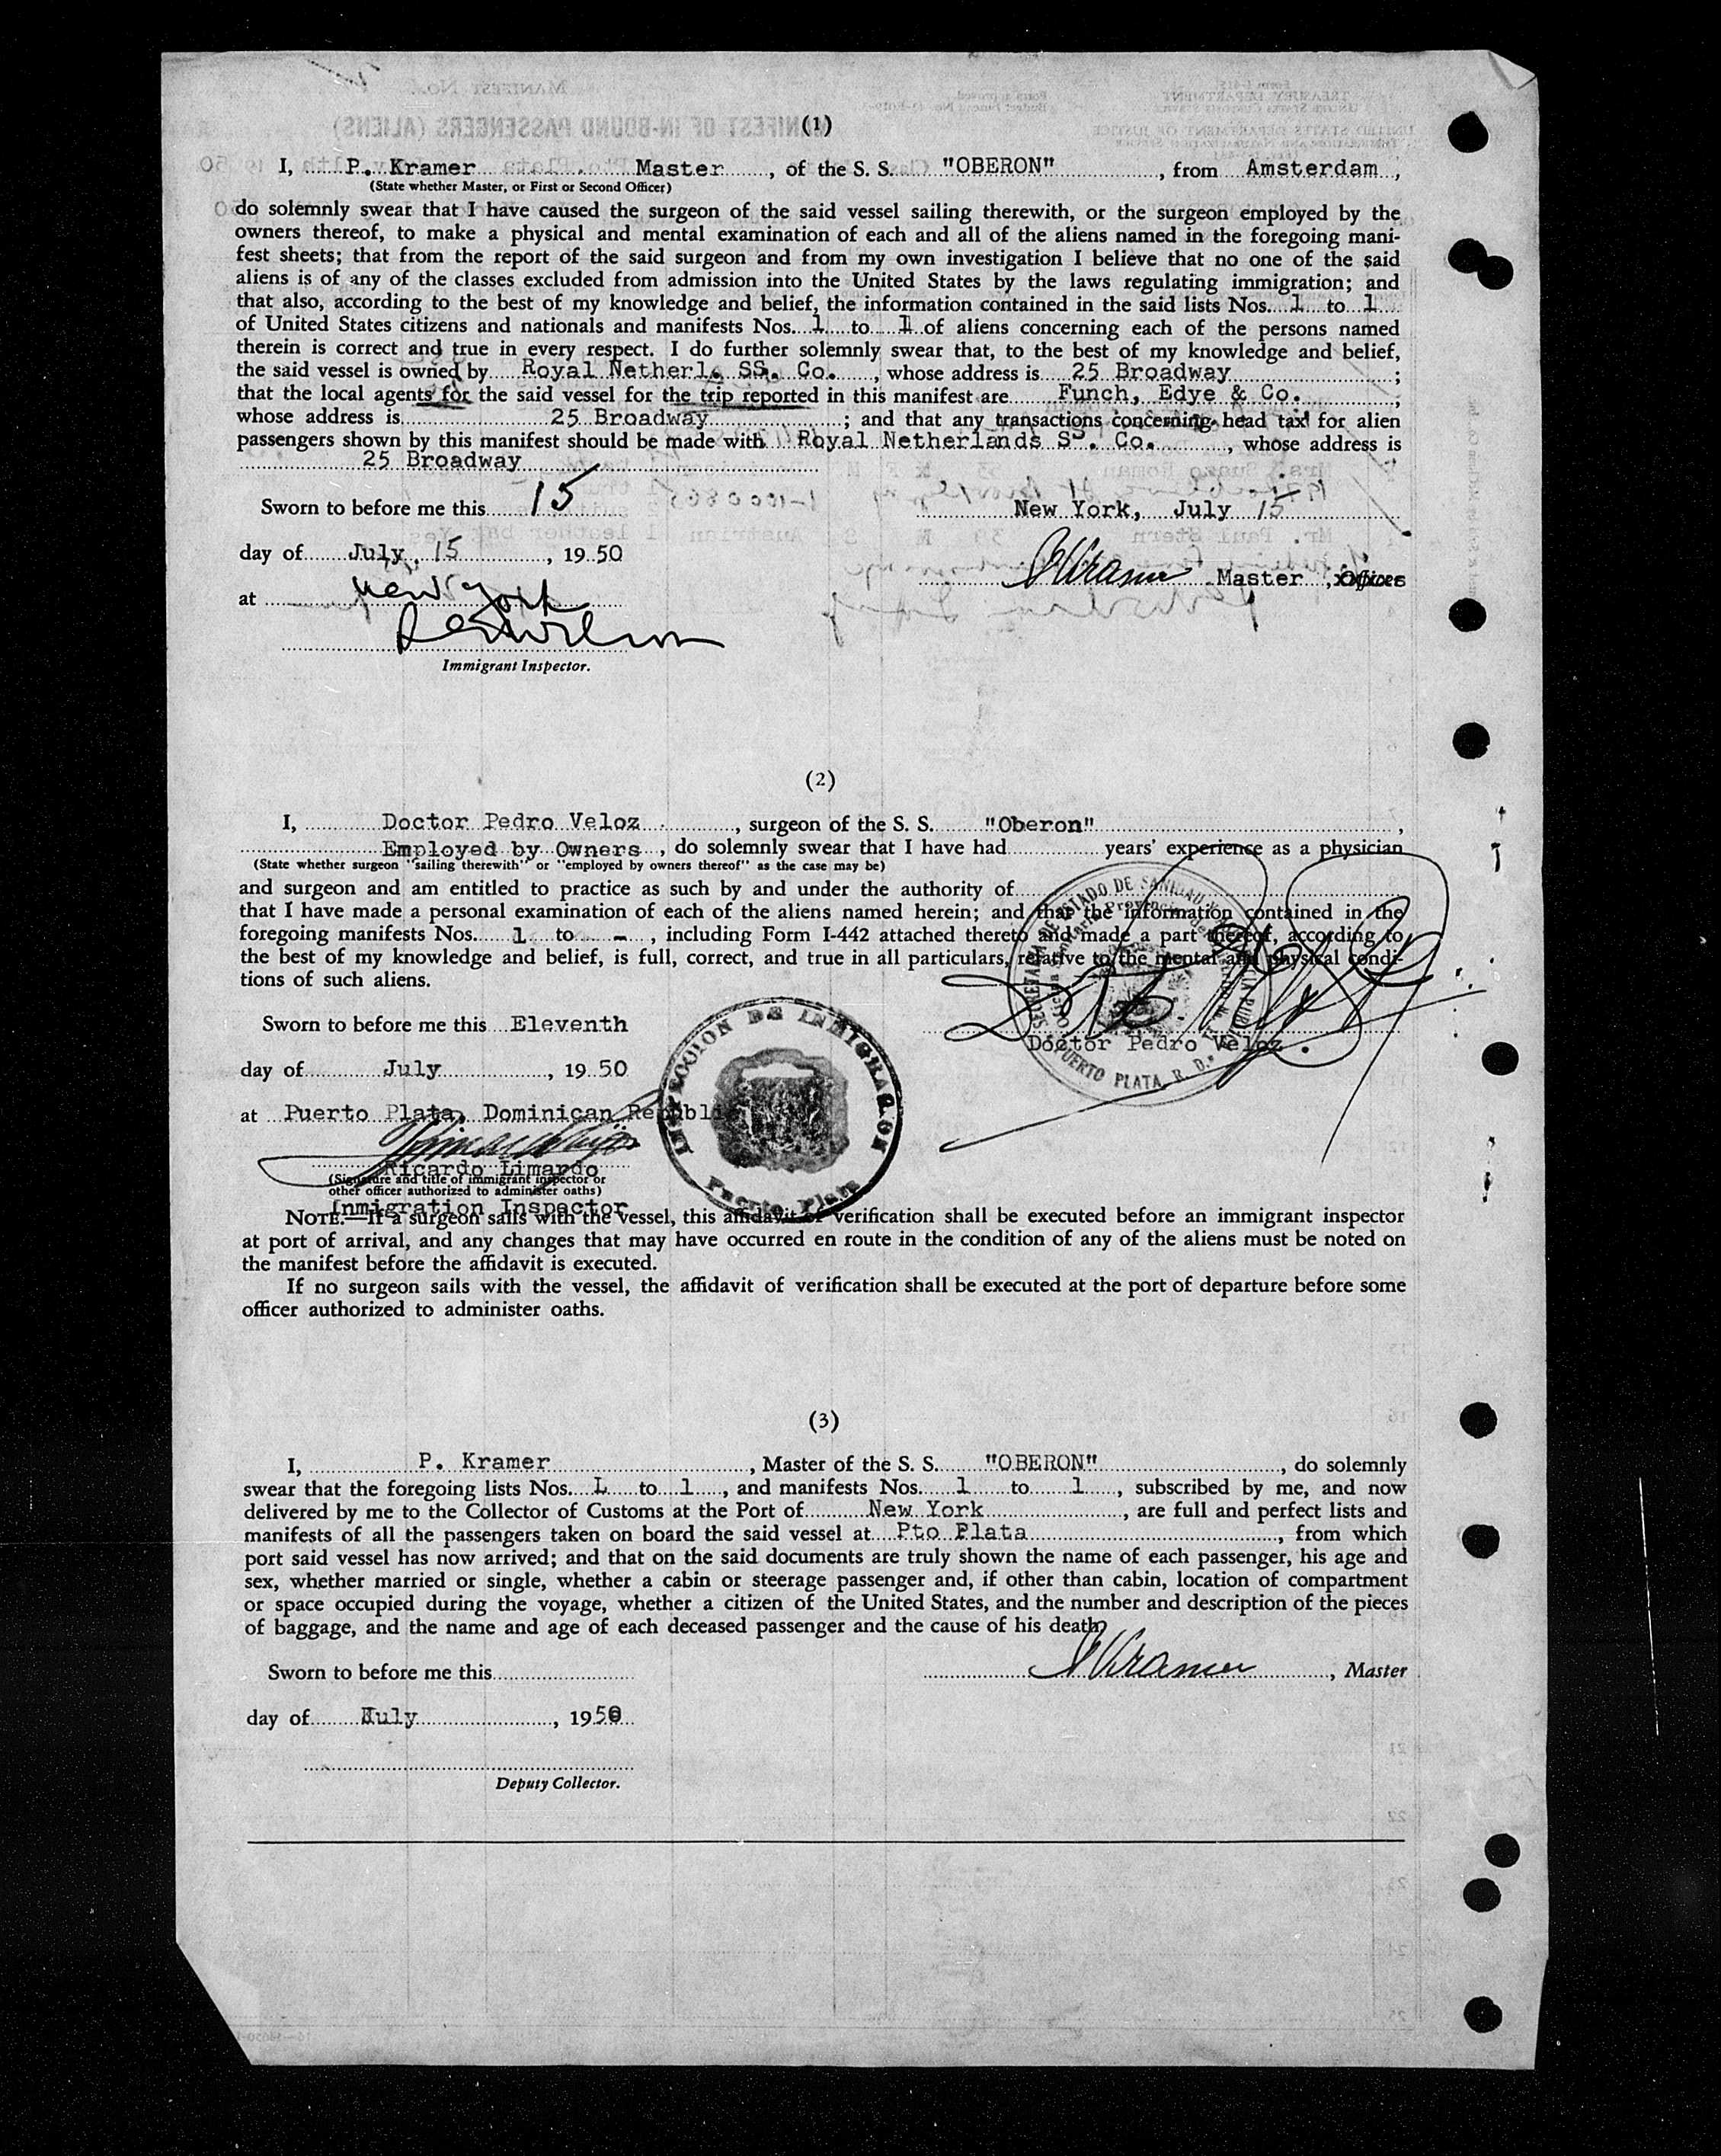 (1)
I, P. Kramer Master, of the S. S. "OBERON", from Amsterdam,
(State whether Master, or First or Second Officer)
do solemnly swear that I have caused the surgeon of the said vessel sailing therewith, or the surgeon employed by the
owners thereof, to make a physical and mental examination of each and all of the aliens named in the foregoing mani-
fest sheets; that from the report of the said surgeon and from my own investigation I believe that no one of the said
aliens is of any of the classes excluded from admission into the United States by the laws regulating immigration; and
that also, according to the best of my knowledge and belief, the information contained in the said lists Nos. 1 to 1
of United States citizens and nationals and manifests Nos. 1 to 1 of aliens concerning each of the persons named
therein is correct and true in every respect. I do further solemnly swear that, to the best of my knowledge and belief,
the said vessel is owned by Royal Netherl. SS. Co., whose address is 25 Broadway;
that the local agents for the said vessel for the trip reported in this manifest are Funch, Edye & Co.,
whose address is 25 Broadway; and that any transactions concerning head tax for alien
passengers shown by this manifest should be made with Royal Netherlands SS. Co., whose address is
25 Broadway
Sworn to before me this 15 New York, July 15
day of July, 15, 1950
PKramer Master, Officer
at New York
Immigrant Inspector.
(2)
I, Doctor Pedro Veloz, surgeon of the S. S. "Oberon",
Employed by Owners, do solemnly swear that I have had years' experience as a physician
(State whether surgeon "sailing therewith" or "employed by owners thereof" as the case may be)
and surgeon and am entitled to practice as such by and under the authority of
that I have made a personal examination of each of the aliens named herein; and that the information contained in the
foregoing manifests Nos. 1 to -, including Form I-442 attached thereto and made a part thereof, according to
the best of my knowledge and belief, is full, correct, and true in all particulars, relative to the mental and physical condi-
tions of such aliens.
SECRETARIA DE ESTADO DE SANIDAD
PUERTO PLATA, R. D.
Sworn to before me this Eleventh
INSPECCION DE INMIGRACION
Puerto Plata
Doctor Pedro Veloz.
day of July, 1950
at Puerto Plata, Dominican Republic
Ricardo Limardo
(Signature and title of immigrant inspector or
other officer authorized to administer oaths)
Inmigration Inspector
NOTE.—If a surgeon sails with the vessel, this affidavit of verification shall be executed before an immigrant inspector
at port of arrival, and any changes that may have occurred en route in the condition of any of the aliens must be noted on
the manifest before the affidavit is executed.
If no surgeon sails with the vessel, the affidavit of verification shall be executed at the port of departure before some
officer authorized to administer oaths.
(3)
I, P. Kramer, Master of the S. S. "OBERON", do solemnly
swear that the foregoing lists Nos. 1 to 1, and manifests Nos. 1 to 1, subscribed by me, and now
delivered by me to the Collector of Customs at the Port of New York, are full and perfect lists and
manifests of all the passengers taken on board the said vessel at Pto Plata, from which
port said vessel has now arrived; and that on the said documents are truly shown the name of each passenger, his age and
sex, whether married or single, whether a cabin or steerage passenger and, if other than cabin, location of compartment
or space occupied during the voyage, whether a citizen of the United States, and the number and description of the pieces
of baggage, and the name and age of each deceased passenger and the cause of his death.
Sworn to before me this PKramer, Master
day of July, 1950
Deputy Collector.